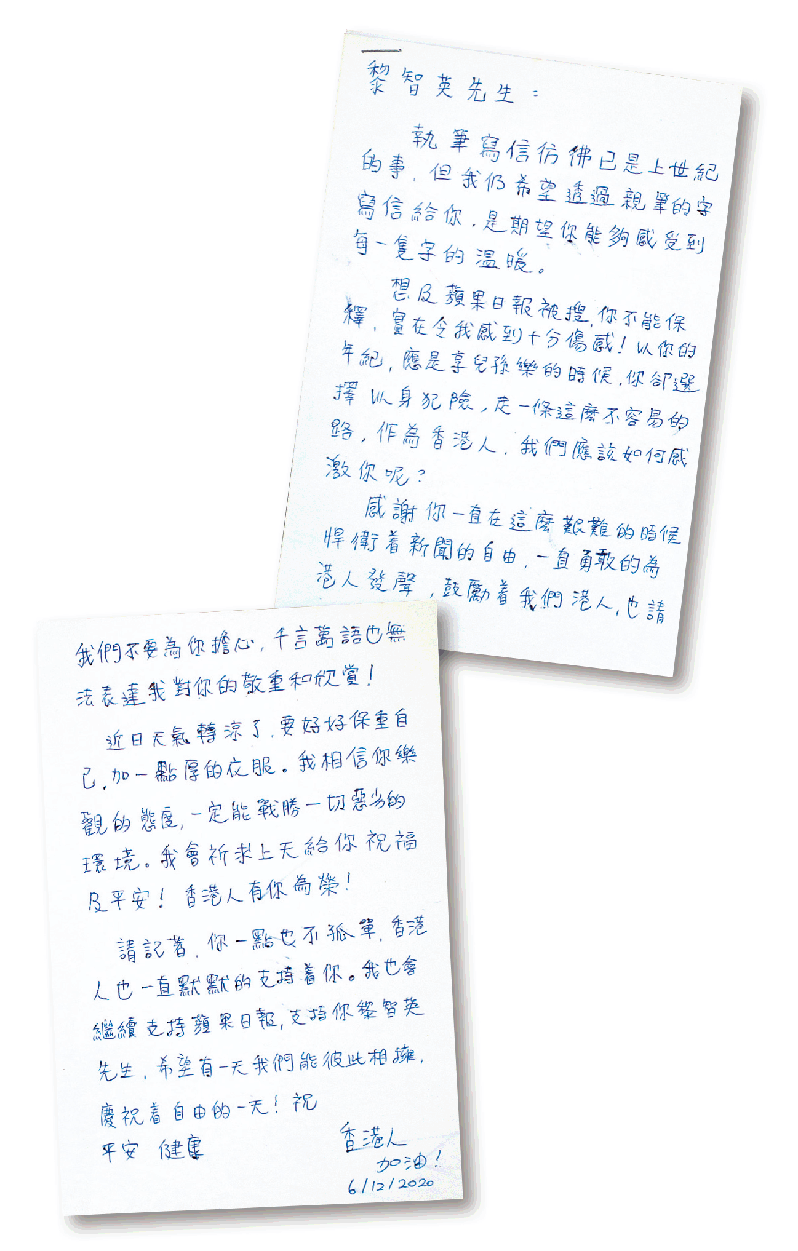 黎智英先生：
執筆寫信彷彿已是上世紀
的事，但我仍希望透過親筆的字
寫信給你，是期望你能夠感受到
每一隻字的溫暖。
想及蘋果日報被搜，你不能保
釋，實在令我感到十分傷感！以你的
年紀，應是享兒孫樂的時候，你卻選
擇以身犯險，走一條這麼不容易的
路，作為香港人，我們應該如何感
激你呢？
感謝你一直在這麼艱難的時候
悍衛着新聞的自由，一直勇敢的為
港人發聲，鼓勵着我們港人，也請
我們不要為你擔心，千言萬語也無
法表達我對你的敬重和欣賞！
近日天氣轉涼了，要好好保重自
己，加一點厚的衣服。我相信你樂
觀的態度，一定能戰勝一切惡劣的
環境。我會祈求上天給你祝福
及平安！香港人有你為榮！
請記着，你一點也不孤單，香港
人也一直默默的支持着你。我也會
繼續支持蘋果日報，支持你黎智英
先生，希望有一天我們能彼此相擁，
慶祝着自由的一天！祝
平安 健康
香港人
加油！
6/12/2020